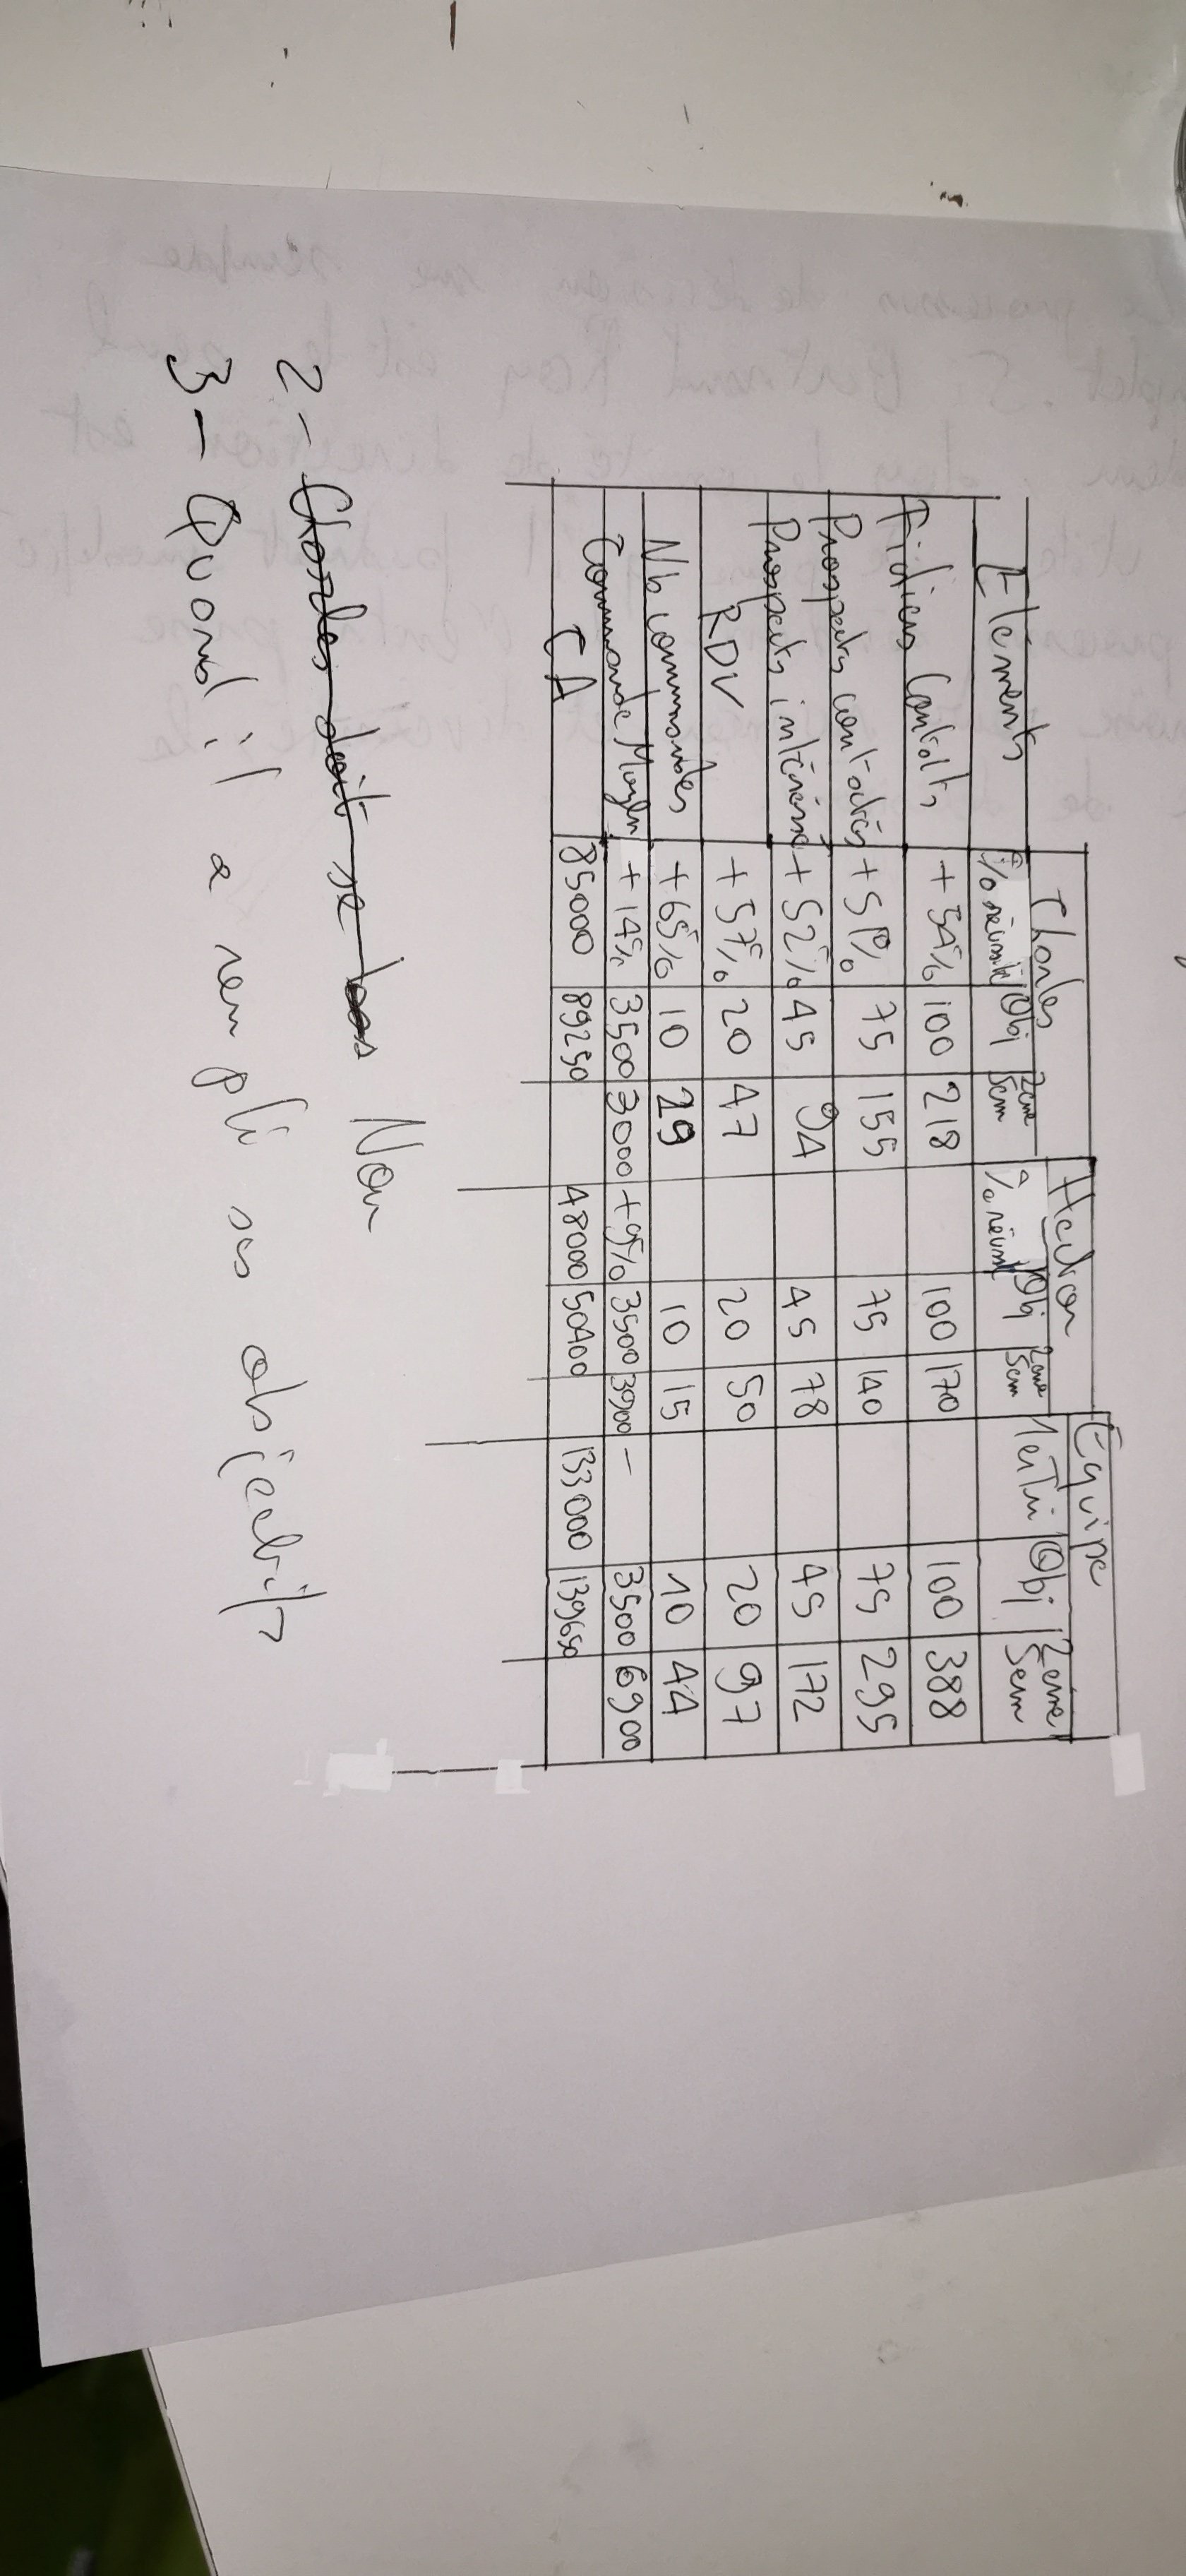 Charles Hedran Equipe
Elements % réussite Obj 2eme Sem % réussite Obj 2eme Sem 1er Tri Obj 2eme Sem
Fichiers Contacts +54% 100 218 100 170 100 388
Prospects contactés +51% 75 155 75 140 75 295
Prospects intéressé +52% 45 94 45 78 45 172
RDV +57% 20 47 20 50 20 97
Nb commandes +65% 10 29 10 15 10 44
Commande Moyen +14% 3500 3000 +9% 3500 3900 - 3500 6900
CA 85000 89250 48000 50400 133000 139650
2- Charles doit se Non
3- Quand il a rempli ses objectifs